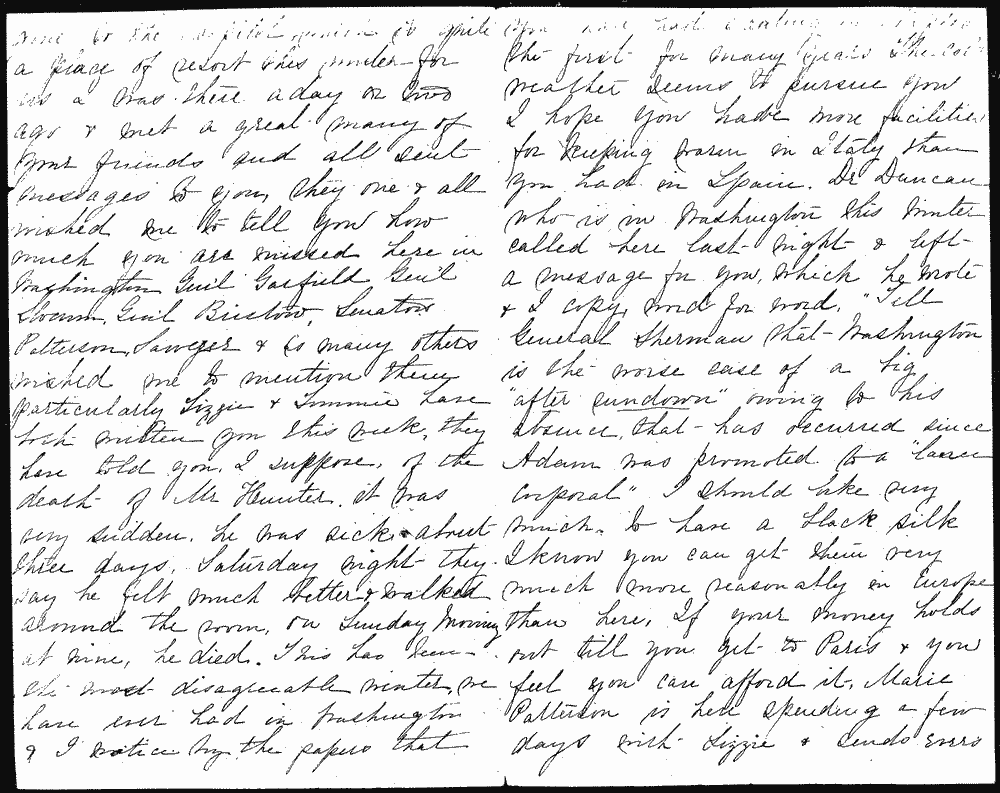 to the
a place of resort this winter for
us a was there a day or two
ago & met a great many of
your friends and all sent
messages to you, they one & all
wished me to tell you how
much you are missed here in
Washington Genl Garfield Gen'l
Slocum, Genl Bristow, Senators
Patterson, Sawyer & so many others
wished me to mention them
particularly Lizzie & Minnie have
both written you this week, they
have told you, I suppose, of the
death of Mr Hunter. it was
very sudden. he was sick about
three days, Saturday night they
say he felt much better & walked
around the room, on Sunday Morning
at nine, he died. This has been
the most disagreeable winter, we
have ever had in Washington
& I notice by the papers that
you have had skating in
the first for many years The cold
weather seems to pursue you
I hope you have more facilities
for keeping warm in Italy than
you had in Spain. Dr Duncan
who is in Washington this winter
called here last night & left
a message for you, which he wrote
& I copy, word for word. "Tell
General Sherman that Washington
is the worse case of a big
"after sundown" owing to his
absence, that has occurred since
Adam was promoted to a "lance
corporal" I should like very
much, to have a black silk
I know you can get them very
much more reasonably in Europe
than here, If your money holds
out till you get to Paris & you
feel you can afford it. Marie
Patterson is here spending a few
days with Lizzie & sends